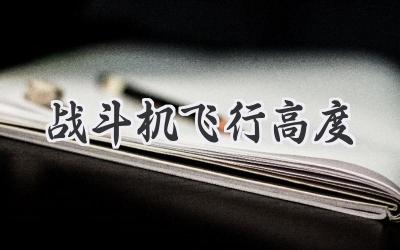 战斗机飞行高度